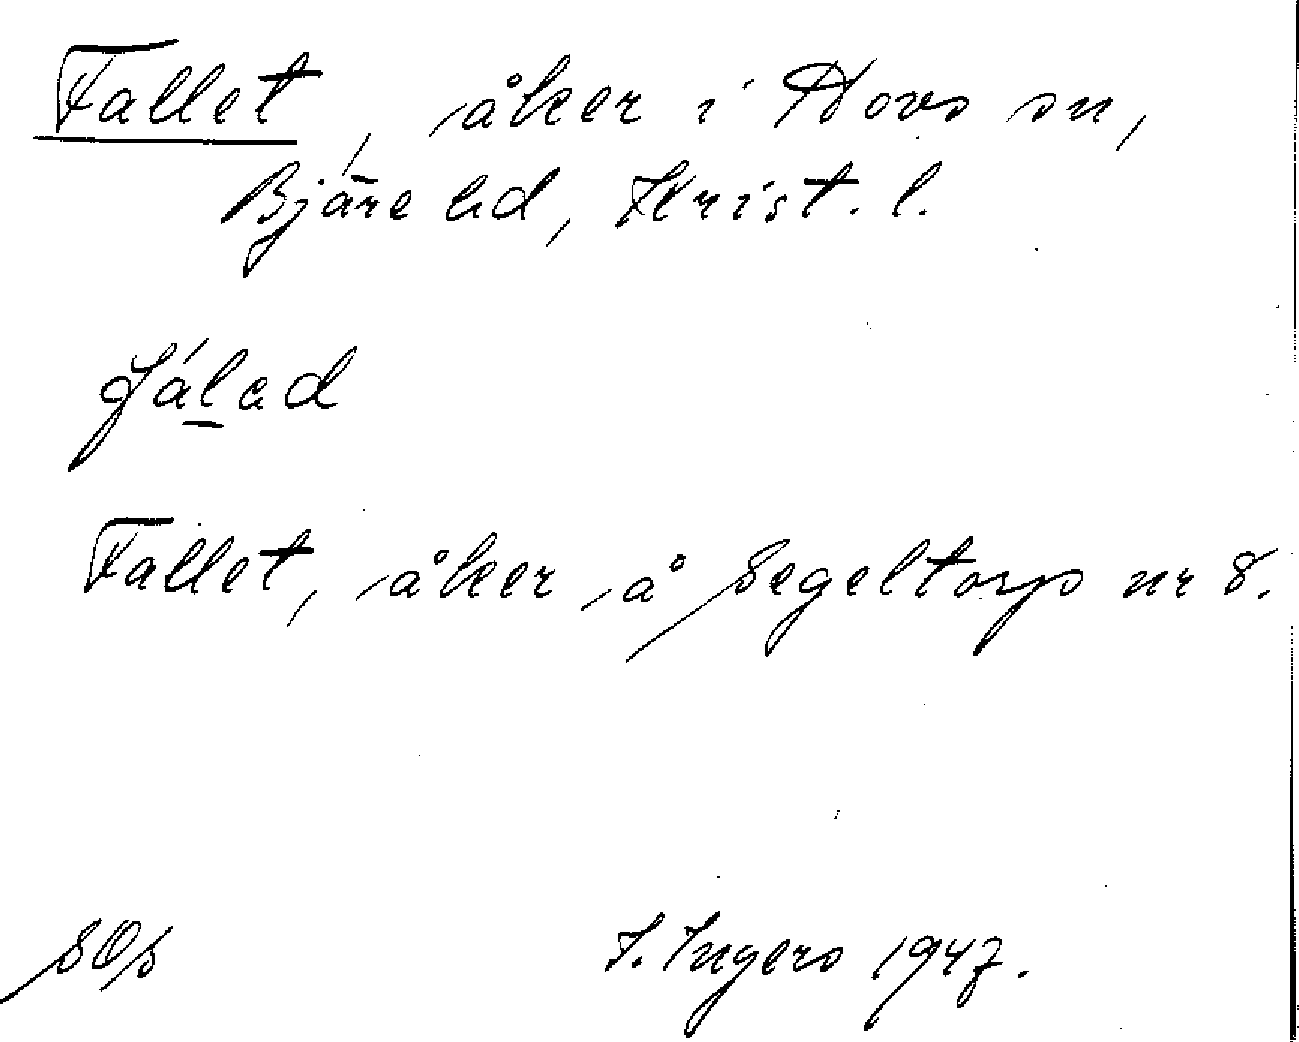 Fallet, åker i Hovs sn,
Bjäre hd, Krist. l.
fálad
Fallet, åker å Segeltorp nr 8.
I. Ingers 1947.